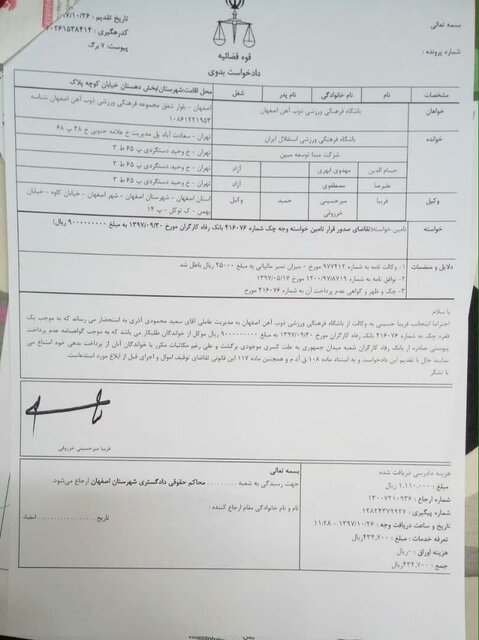 بسمه تعالی
شماره پرونده :
قوه قضائیه
دادخواست بدوی
تاریخ تقدیم : ۱۳۹۷/۱۰/۲۶
کدرهگیری :
پیوست: ۷ برگ
مشخصات نام نام خانوادگی نام پدر شغل محل اقامت:شهرستان/بخش دهستان خیابان کوچه پلاک
خواهان باشگاه فرهنگی ورزشی ذوب آهن اصفهان اصفهان - بلوار شفق مجموعه فرهنگی ورزشی ذوب آهن اصفهان شناسه
۱۰۸۶۱۲۲۱۹۵۳
خوانده باشگاه فرهنگی ورزشی استقلال ایران تهران - سعادت آباد پل مدیریت خ علامه جنوبی خ ۳۸ پ ۶۸
شرکت مبنا توسعه مبین تهران - خ وحید دستگردی پ ۶۵ ط ۲
حسام الدین مهدوی ابهری آزاد تهران - خ وحید دستگردی پ ۶۵ ط ۲
علیرضا مصطفوی آزاد تهران - خ وحید دستگردی پ ۶۵ ط ۲
وکیل فریبا میرحسینی خرزوقی حمید وکیل استان اصفهان - شهرستان اصفهان - شهر اصفهان - خیابان کاوه - خیابان
بهمن - ک توکل - پ ۱۴
خواسته تامین خواسته(تقاضای صدور قرار تامین خواسته وجه چک شماره ۴۱۶۰۷۶ بانک رفاه کارگران مورخ ۱۳۹۷/۰۹/۳۰ به مبلغ ۹۰۰۰۰۰۰۰۰۰ ریال)
دلایل و منضمات ۱- وکالت نامه به شماره ۹۷۷۴۱۲ مورخ - میزان تمبر مالیاتی به مبلغ ۲۵۰۰۰ ریال باطل شد
۲- توافق نامه به شماره ۱۲۰۰/۹۷/۸۷۱۹ مورخ ۱۳۹۷/۰۵/۱۷
۳- چک و ظهر و گواهی عدم پرداخت آن به شماره ۴۱۶۰۷۶ مورخ
با سلام
احتراما اینجانب فریبا حسینی به وکالت از باشگاه فرهنگی ورزشی ذوب آهن اصفهان به مدیریت عاملی آقای سعید محمودی آذری به استحضار می رساند که به موجب یک
فقره چک به شماره ۴۱۶۰۷۶ بانک رفاه کارگران مورخ ۱۳۹۷/۰۹/۳۰ به مبلغ ۹۰۰۰۰۰۰۰۰۰ ریال موکل از خواندگان طلبکار می باشد که به موجب گواهینامه عدم پرداخت
پیوستی صادره از بانک رفاه کارگران شعبه میدان جمهوری به علت کسری موجودی برگشت و علی رغم مکاتبات مکرر با خواندگان آنان از پرداخت بدهی خود امتناع می
نمایند حال با تقدیم این دادخواست و به استناد ماده ۱۰۸ ق آ.د.م و همچنین ماده ۱۱۷ این قانونی تقاضای توقیف اموال و اجرای قبل از ابلاغ مورد استدعاست.
با تشکر
فریبا میرحسینی خرزوقی
بسمه تعالی
جهت رسیدگی به شعبه .......... محاکم حقوقی دادگستری شهرستان اصفهان ارجاع می‌شود.
نام و نام خانوادگی مقام ارجاع کننده :
تاریخ .......... امضاء
هزینه دادرسی دریافت شده
مبلغ : ۱,۱۱۰,۰۰۰ ریال
شماره ارجاع : ۱۳۰۰۷۲۱۰۹۳۶
شماره پیگیری : ۱۲۸۲۴۳۷۹۹۲۷
تاریخ و ساعت دریافت وجه : ۱۳۹۷/۱۰/۲۶ - ۱۱:۳۸
تعرفه خدمات : مبلغ ۴۳۴,۷۰۰ ریال
هزینه اوراق : ۰ریال
جمع : ۴۳۴,۷۰۰ریال